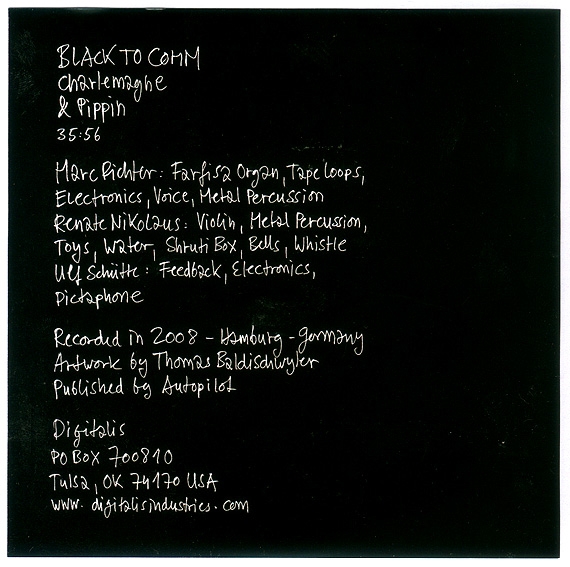 BLACK TO COMM
Charlemagne
& Pippin
35:56
Marc Richter: Farfisa Organ, Tape loops,
Electronics, Voice, Metal Percussion
Renate Nikolaus: Violin, Metal Percussion,
Toys, Water, Shruti Box, Bells, Whistle
Ulf Schütte: Feedback, Electronics,
Dictaphone
Recorded in 2008 - Hamburg - Germany
Artwork by Thomas Baldischwyler
Published by Autopilot
Digitalis
PO Box 700810
Tulsa, OK 74170 USA
www.digitalisindustries.com